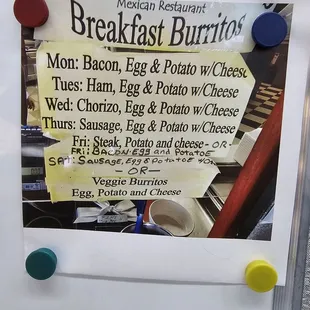 Mexican Restaurant
Breakfast Burritos
Mon: Bacon, Egg & Potato w/Cheese
Tues: Ham, Egg & Potato w/Cheese
Wed: Chorizo, Egg & Potato w/Cheese
Thurs: Sausage, Egg & Potato w/Cheese
Fri: Steak, Potato and cheese -OR-
FRI: BACON-EGG and POTATOE
SAT: SAUSAGE, EGG & POTATOE
— OR —
Veggie Burritos
Egg, Potato and Cheese